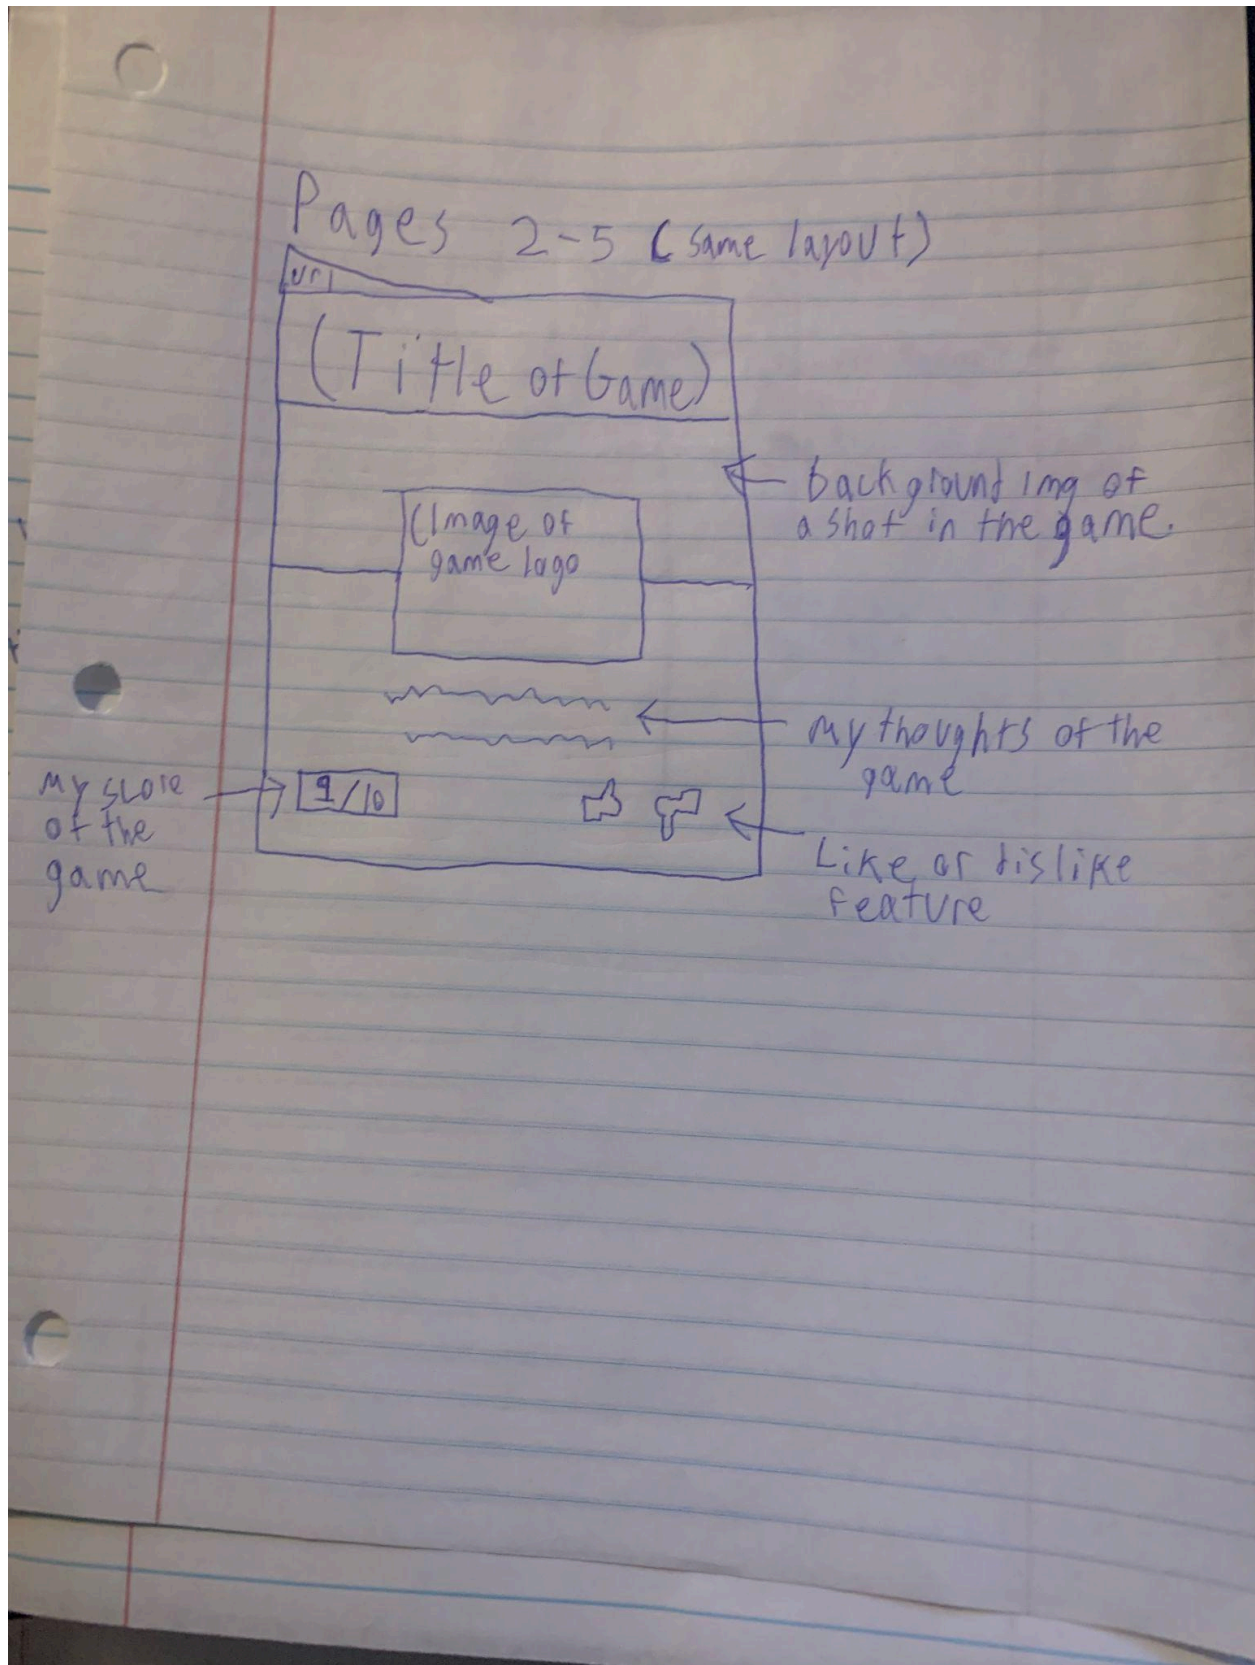 Pages 2-5 (same layout)
url
(Title of Game)
background img of
a shot in the game.
(Image of
game logo
my thoughts of the
game
My score
of the
game
9/10
Like or dislike
feature